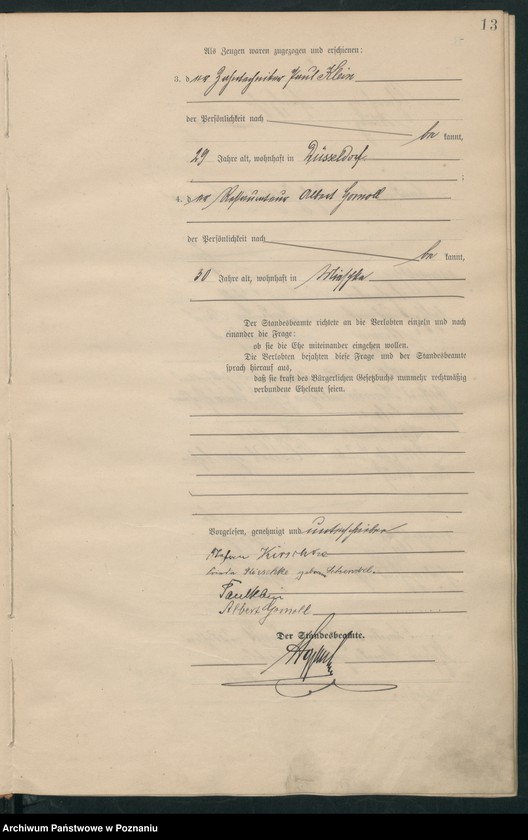 13
Als Zeugen waren zugezogen und erschienen:
3. der Zahntechniker Paul Klein
der Persönlichkeit nach
be kannt,
29 Jahre alt, wohnhaft in Düsseldorf
;
4. der Restaurateur Albert Gomoll
der Persönlichkeit nach
be kannt,
30 Jahre alt, wohnhaft in
Der Standesbeamte richtete an die Verlobten einzeln und nach
einander die Frage:
ob sie die Ehe miteinander eingehen wollen.
Die Verlobten bejahten diese Frage und der Standesbeamte
sprach hierauf aus,
daß sie kraft des Bürgerlichen Gesetzbuchs nunmehr rechtmäßig
verbundene Eheleute seien.
Vorgelesen, genehmigt und unterschrieben
Kirschke
Paul Klein
Albert Gomoll
Der Standesbeamte.
Archiwum Państwowe w Poznaniu